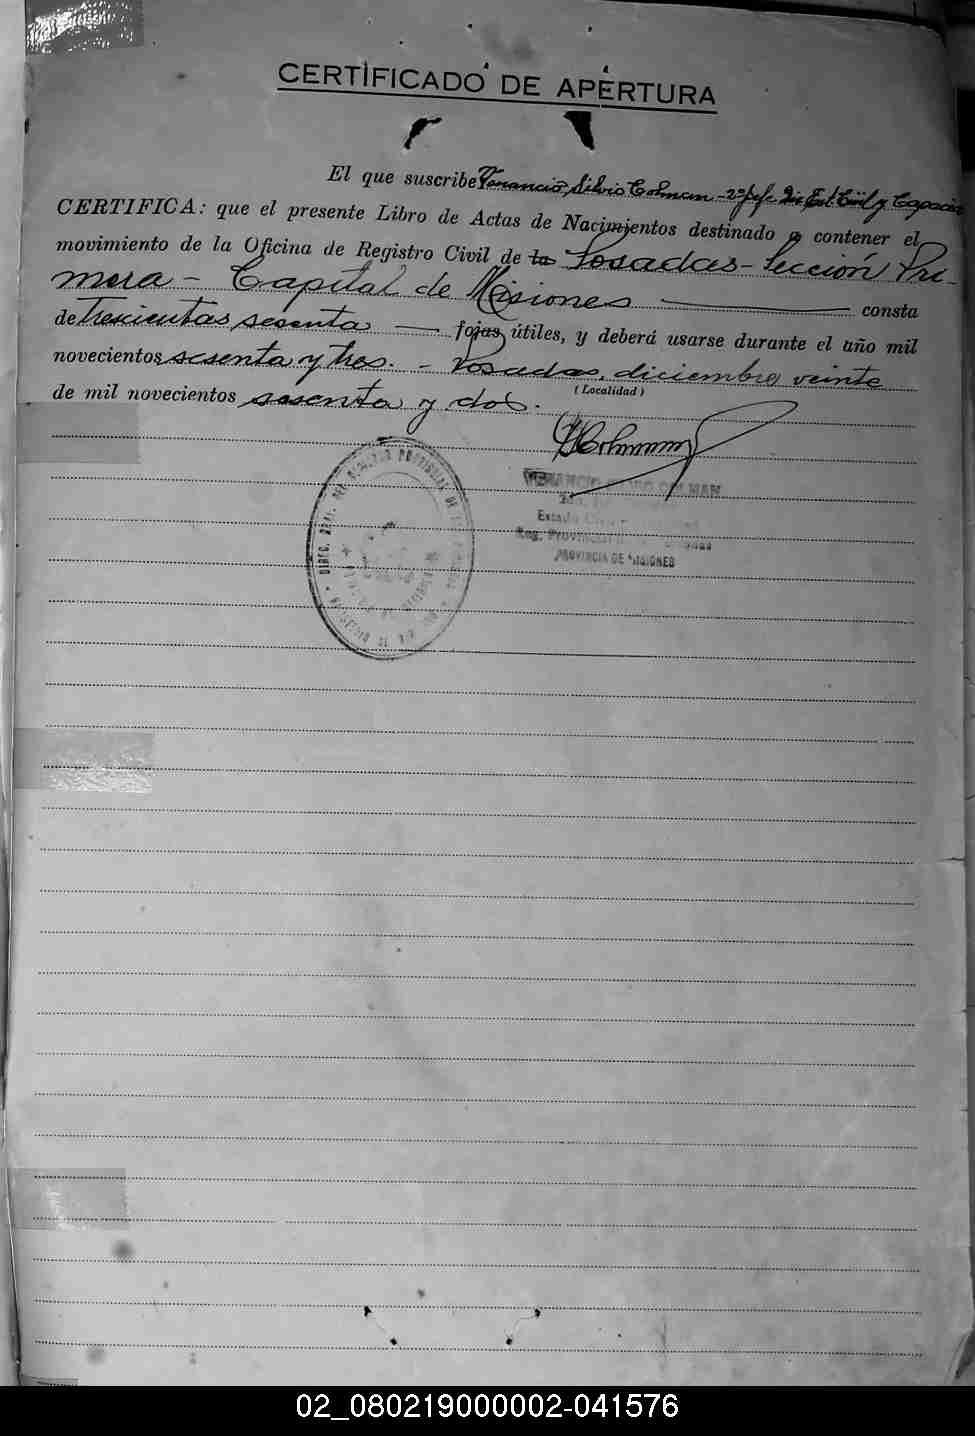 CERTIFICADO DE APERTURA
El que suscribe Venancio Silvio Colman - 2º Jefe Dir. Est. Civil y Capacid
CERTIFICA: que el presente Libro de Actas de Nacimientos destinado a contener el
movimiento de la Oficina de Registro Civil de la Posadas - Sección Pri-
mera - Capital de Misiones consta
de Trescientas sesenta fojas útiles, y deberá usarse durante el año mil
novecientos sesenta y tres. - Posadas, diciembre veinte
(Localidad)
de mil novecientos sesenta y dos.
VENANCIO COLMAN
Estado
Reg. Provincial
PROVINCIA DE MISIONES
02_080219000002-041576